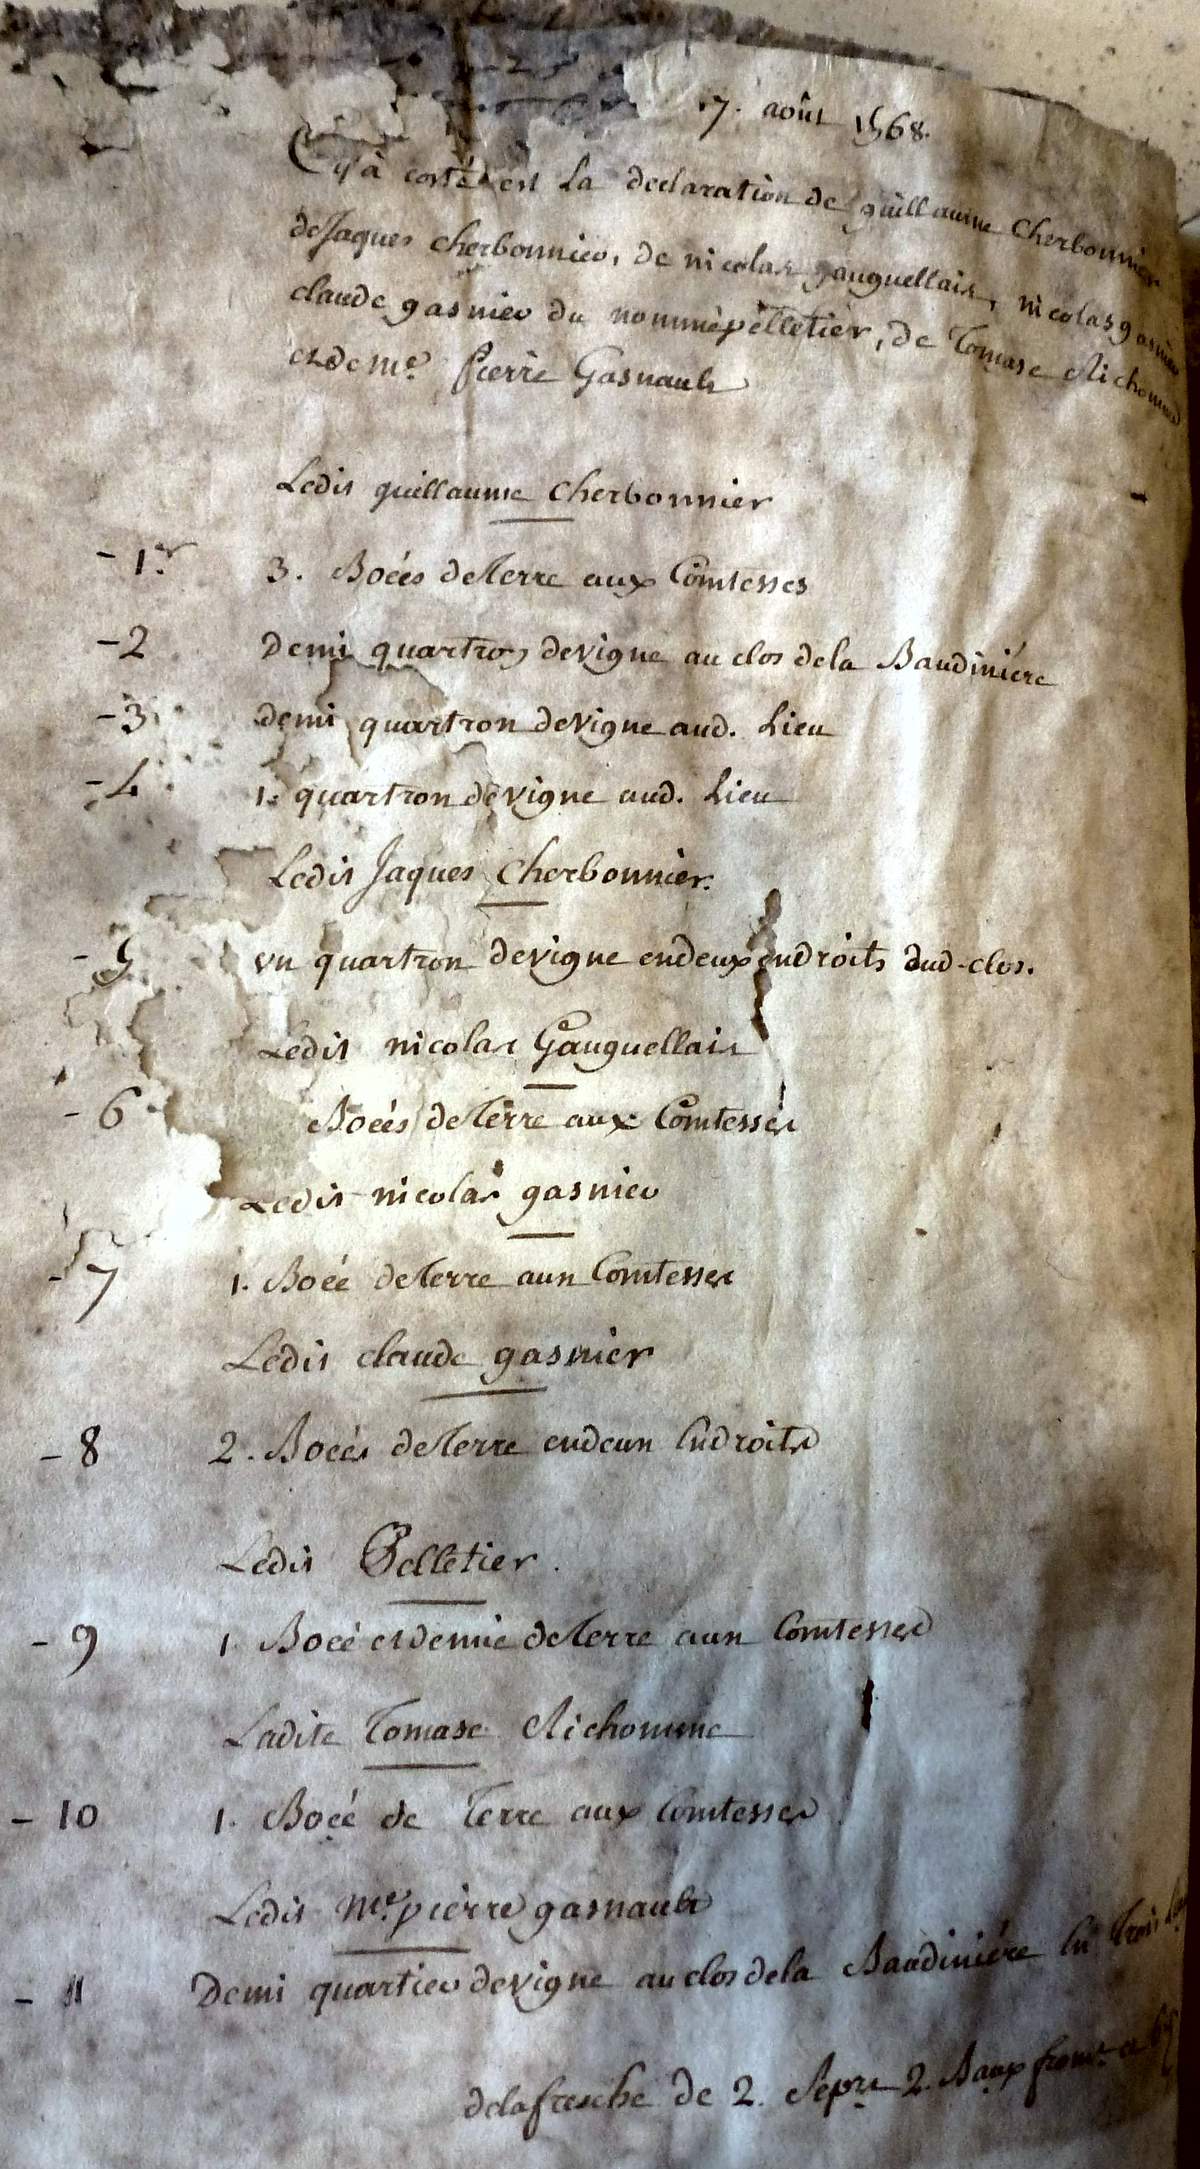 17. août 1568.
Cy à costé est La declaration de guillaume Cherbonnier
de Jaques cherbonnier, de nicolas gauguellais, nicolas gasnier
claude gasnier du nommé pelletier, de Tomase Richomme
et de Me. Pierre Gasnault
Ledit guillaume Cherbonnier
- 1er 3. Boeés de Terre aux Comtesses
- 2 Demi quartron de vigne au clos de la Baudiniére
- 3 demi quartron de vigne aud. Lieu
- 4 1. quartron de vigne aud. Lieu
Ledit Jaques Cherbonnier.
- 5 un quartron de vigne en deux endroits dud. clos.
Ledit nicolas Gauguellais
- 6 Boeés de Terre aux Comtesses
Ledit nicolas gasnier
- 7 1. Boeé de Terre aux Comtesses
Ledit claude gasnier
- 8 2. Boeés de Terre en deux Endroits
Ledit Pelletier.
- 9 1. Boeé et demie de Terre aux Comtesses
Ladite Tomase Richomme
- 10 1. Boeé de Terre aux Comtesses
Ledit Me. pierre gasnault
- 11 Demi quartier de vigne au clos de la Baudiniére En Trois
de la fresche de 2. Sepre 2. Baux from.t a